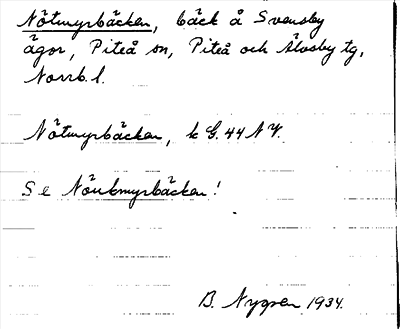 Nötmyrbäcken, bäck å Svensby
ägor, Piteå sn, Piteå och Älvsby tg,
Norrb. l.
Nötmyrbäcken, k G. 44 N V.
Se Nörkmyrbäcken!
B. Nygren 1934.